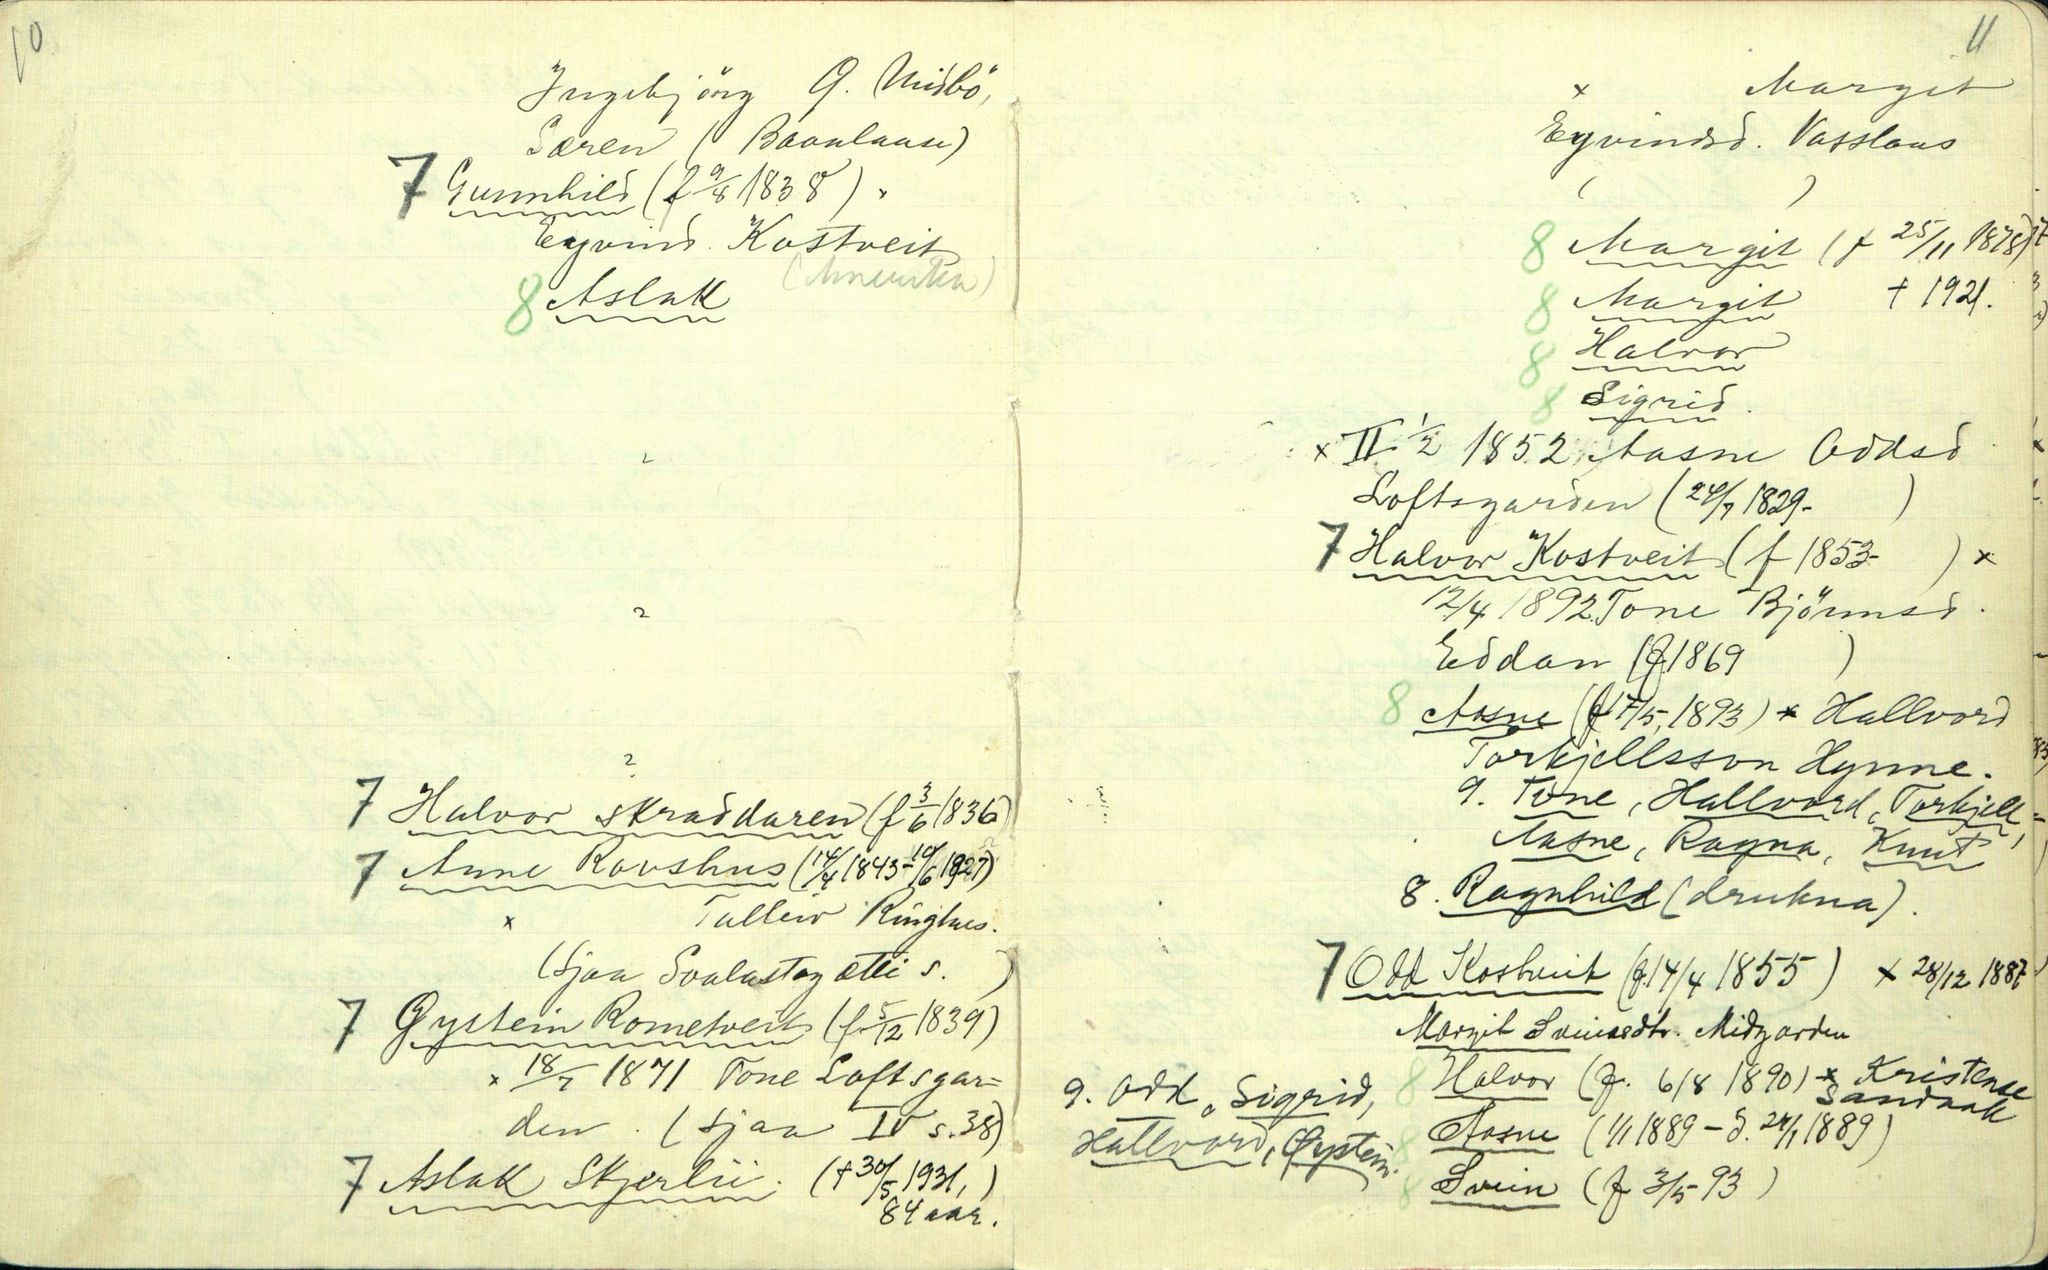 10
Ingebjörg G. Midbö,
Særen (Baanlaase)
7 Gunnhild (f 9/8 1838) ×
Eyvind Kostveit
(Amerika)
8 Aslak
?
?
7 Halvor skraddaren (f 3/6 1836)
7 Anne Raushus (14/4 1843 - 10/6 1927)
× Talleiv Ringhus.
(sjaa Svalastog ætti s. )
7 Øystein Rometveit (f. 5/12 1839)
× 18/7 1871 Tone Loftsgar=
den . (sjaa IV s. 38)
7 Aslak Skjerlii. († 30/5 1931, )
84 aar.
11
× Margit
Eyvindsd. Vasslaus
( )
8 Margit (f 25/11 1878)
8 Margit † 1921.
8 Halvor
8 Sigrid.
× II 1/2 1852 Aasne Oddsd
Loftsgarden (24/7 1829- )
7 Halvor Kostveit (f 1853- ) ×
12/4 1892 Tone Björnsd.
Eddan (f 1869 )
8 Aasne (f 17/5, 1893) × Hallvord
Torkjellsson Hynne.
9. Tone, Hallvord, Torkjell,
Aasne, Ragna, Knut
8. Ragnhild (drukna).
7 Odd Kostveit (f. 14/4 1855) × 28/12 1887
Margit Sveinsdtr. Midgarden
8 Halvor (f. 6/8 1890) × Kristense
Sandaak
9. Odd, Sigrid,
Hallvord, Øystein.
8 Aasne (1/1 1889 – d. 24/1 1889)
8 Svein (f 3/5 93)